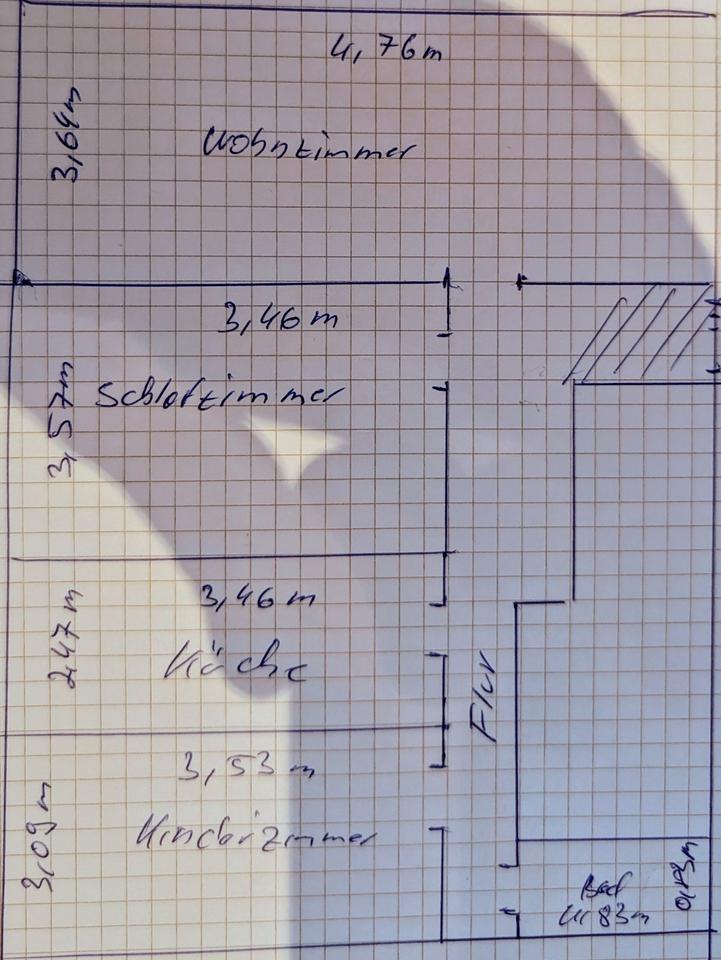 4,76m
3,64m
Wohnzimmer
3,46m
3,57m
Schlafzimmer
3,46m
2,47m
Küche
Flur
3,53m
3,09m
Kinderzimmer
Bad